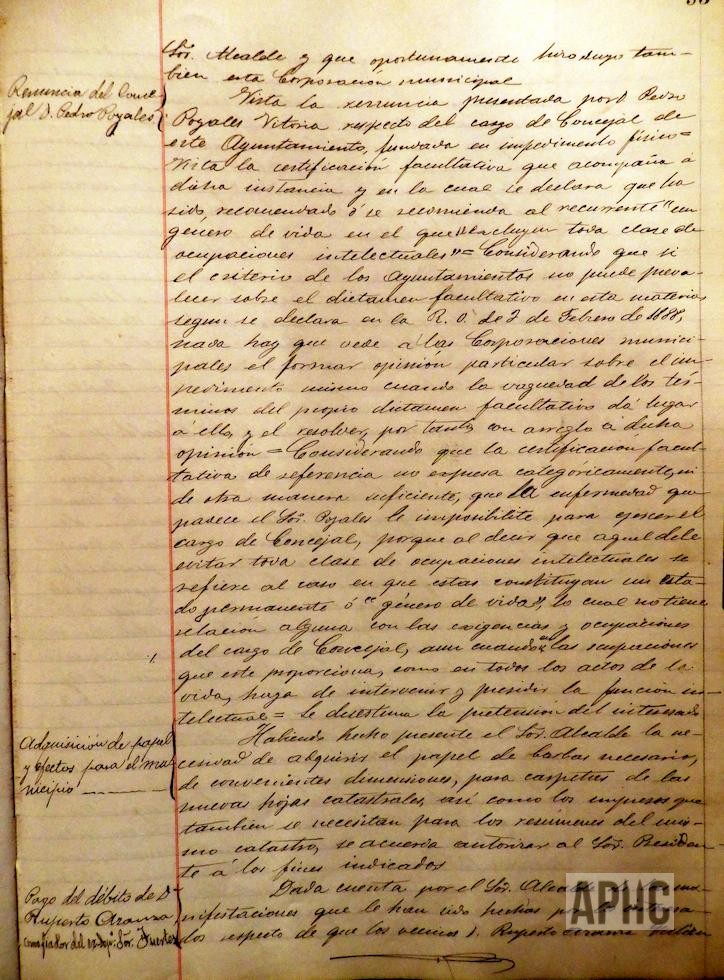 Sor. Alcalde y que oportunamente hizo suyo tam-
bien esta Corporación municipal
Renuncia del Conce-
jal D. Pedro Poyales
Vista la renuncia presentada por D. Pedro
Poyales Vitoria respecto del cargo de Concejal de
este Ayuntamiento, fundada en impedimento físico =
Vista la certificación facultativa que acompaña á
dicha instancia y en la cual se declara que ha
sido recomendado ó se recomienda al recurrente "un
género de vida en el que se excluyan toda clase de
ocupaciones intelectuales" = Considerando que si
el criterio de los Ayuntamientos no puede preva-
lecer sobre el dictamen facultativo en esta materia
segun se declara en la R. O. de 2 de Febrero de 1888,
nada hay que vede á las Corporaciones munici-
pales el formar opinión particular sobre el im-
pedimento mismo cuando la vaguedad de los tér-
minos del propio dictamen facultativo dá lugar
á ello, y el resolver, por tanto, con arreglo á dicha
opinión = Considerando que la certificación facul-
tativa de referencia no expresa categoricamente, ni
de otra manera suficiente, que la enfermedad que
padece el Sor. Poyales le imposibilite para ejercer el
cargo de Concejal, porque al decir que aquel debe
evitar toda clase de ocupaciones intelectuales se
refiere al caso en que estas constituyan un esta-
do permanente ó "género de vida", lo cual no tiene
relación alguna con las exigencias y ocupaciones
del cargo de Concejal, aun cuando en las ocupaciones
que este proporciona, como en todos los actos de la
vida, haya de intervenir y presidir la función in-
telectual = Se desestima la pretensión del interesado
Adquisición de papel
y efectos para el mu-
nicipio
Habiendo hecho presente el Sor. Alcalde la ne-
cesidad de adquirir el papel de barbas necesario,
de convenientes dimensiones, para carpetas de las
nuevas hojas catastrales, así como los impresos que
tambien se necesitan para los resúmenes del mis-
mo catastro, se acuerda autorizar al Sor. Presiden-
te á los fines indicados
Pago del débito de D.
Ruperto Aranza
Dada cuenta por el Sor. Alcalde de ma-
nifestaciones que le han sido hechas
dos respecto de que los vecinos D. Ruperto
APHC